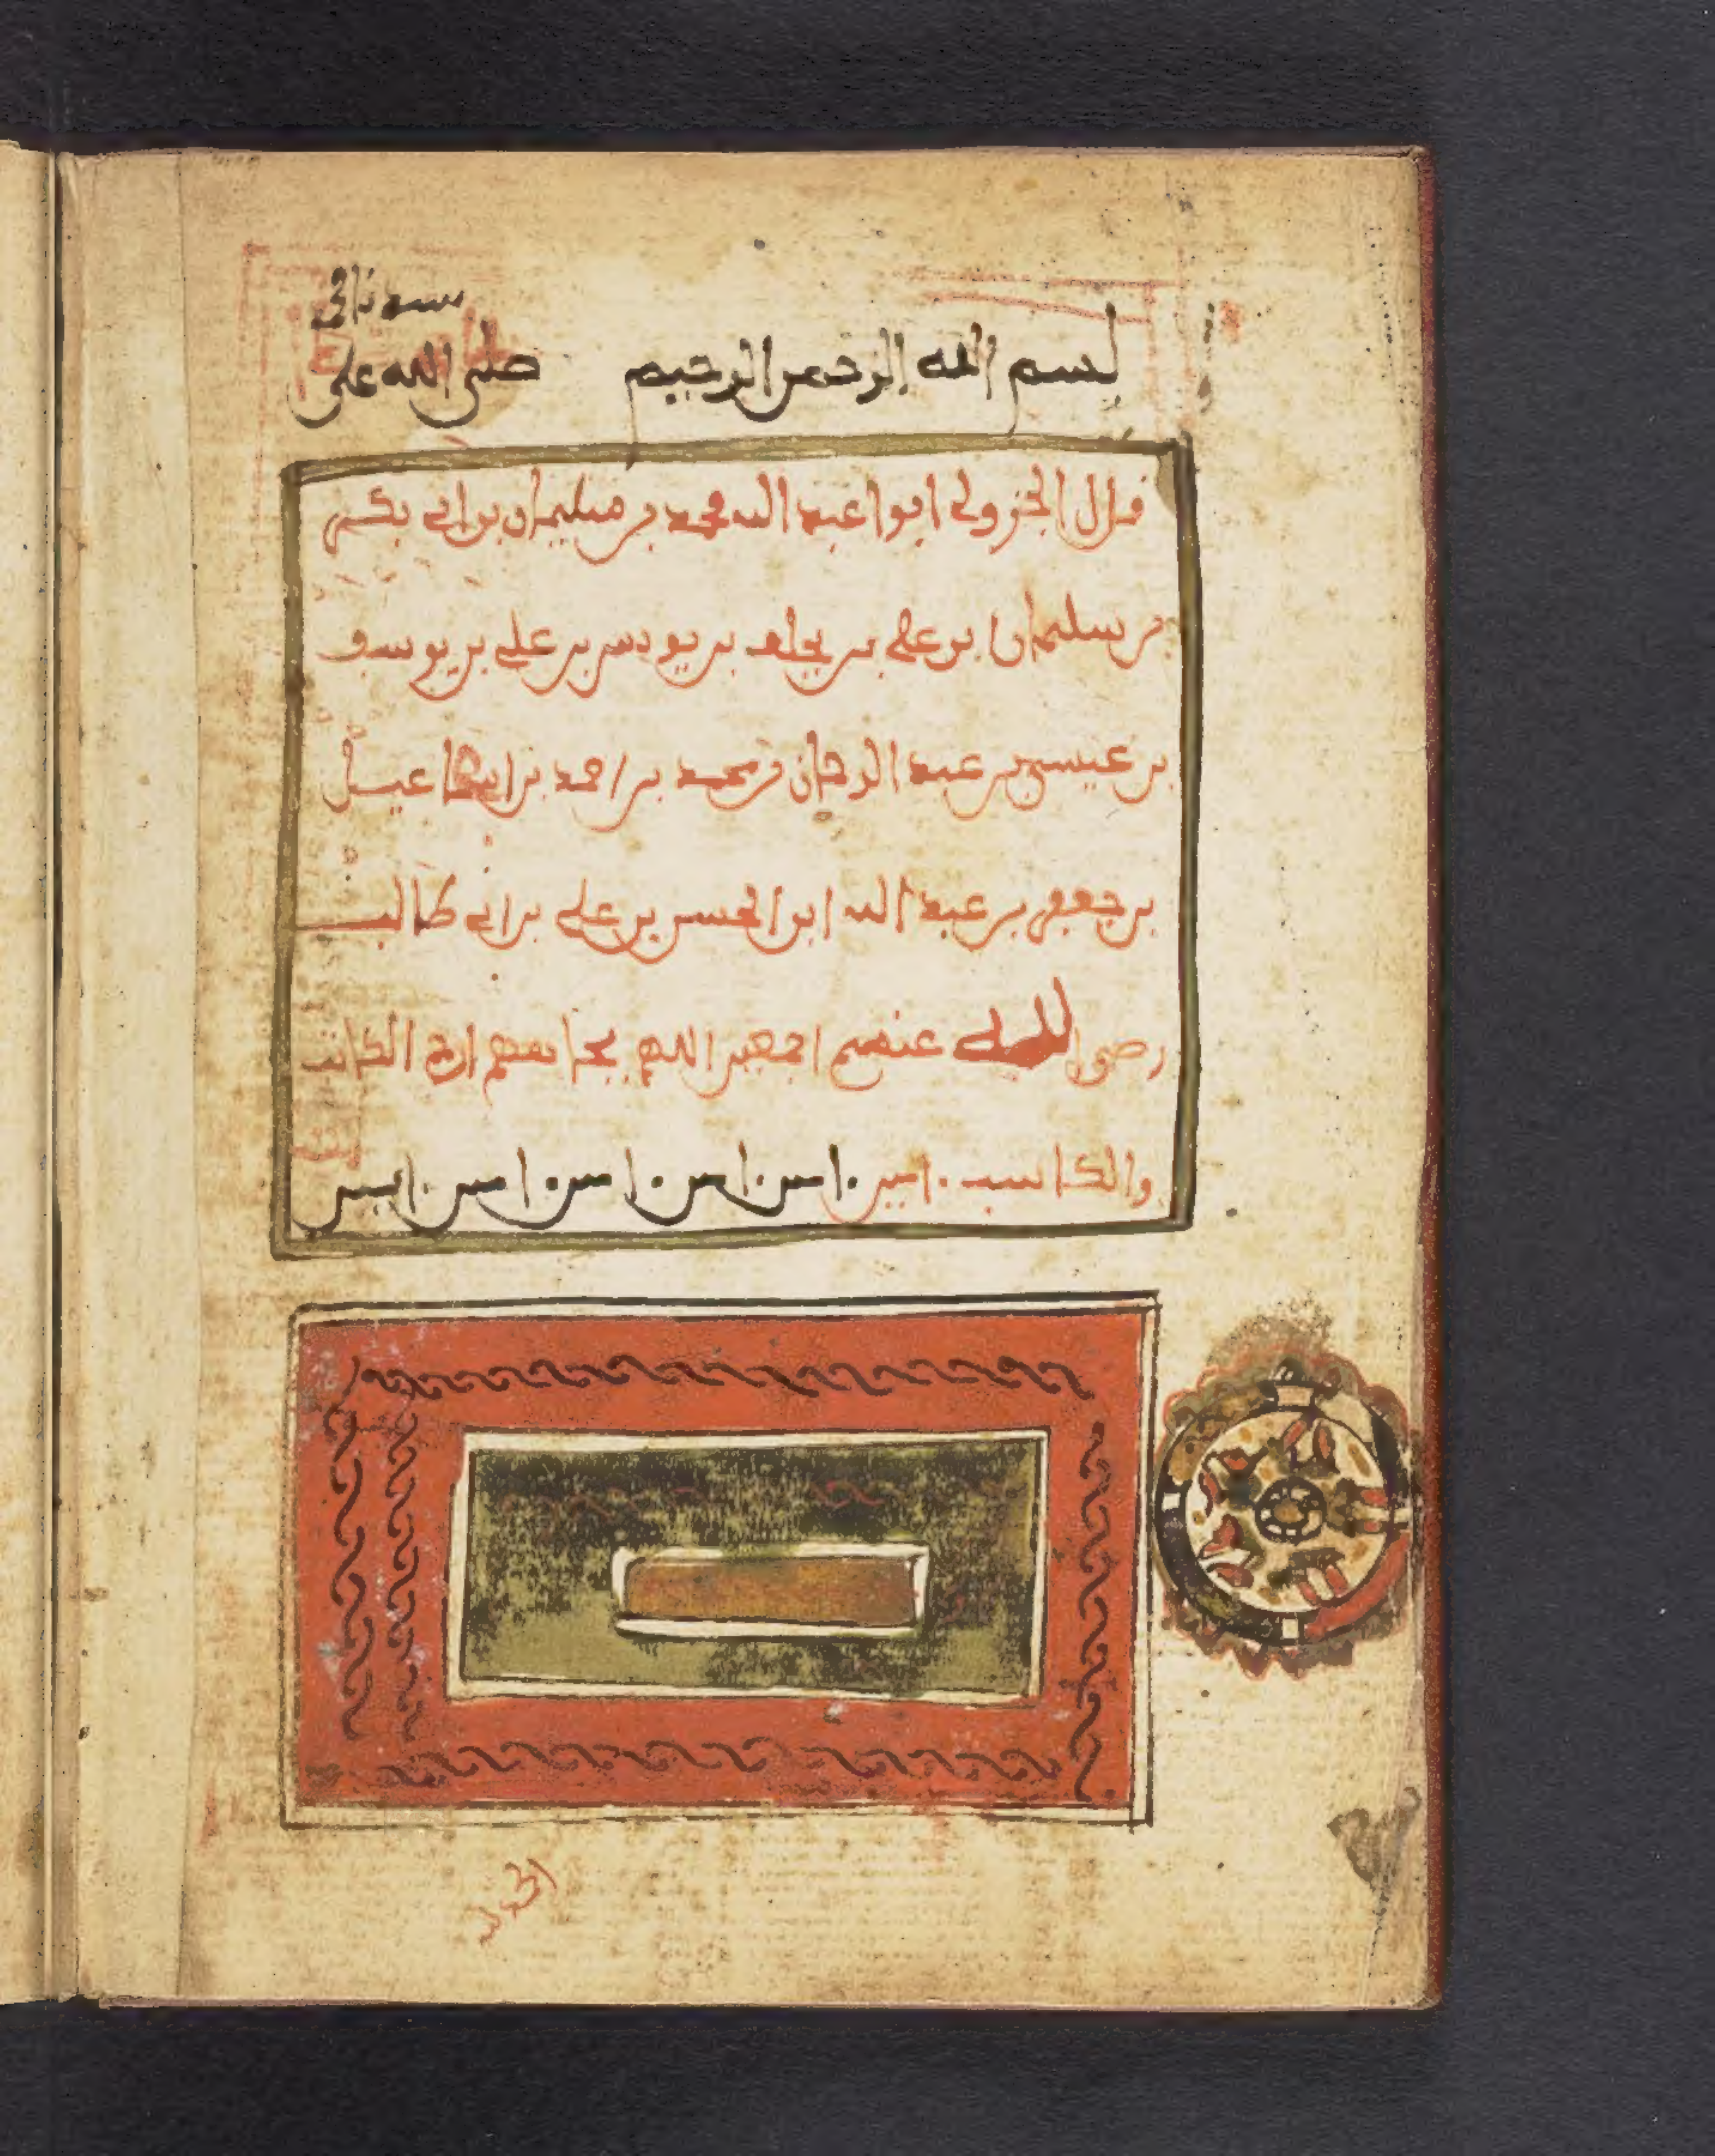 بسم الله الرحمن الرحيم صلى الله على
قال الجزولي ابوا عبد الله محمد بن سليمان بن ابي بكر
بن سليمان بن علي بن يخلف بن يونس بن علي بن يوسف
بن عيسى بن عبد الرحمان بن محمد بن احمد بن اسماعيل
بن جعفر بن عبد الله ابن الحسن بن علي بن ابي طالب
رضي الله عنهم اجمعين اللهم بجاههم ارحم الكاتب
والكاسب امين امين امين امين امين امين